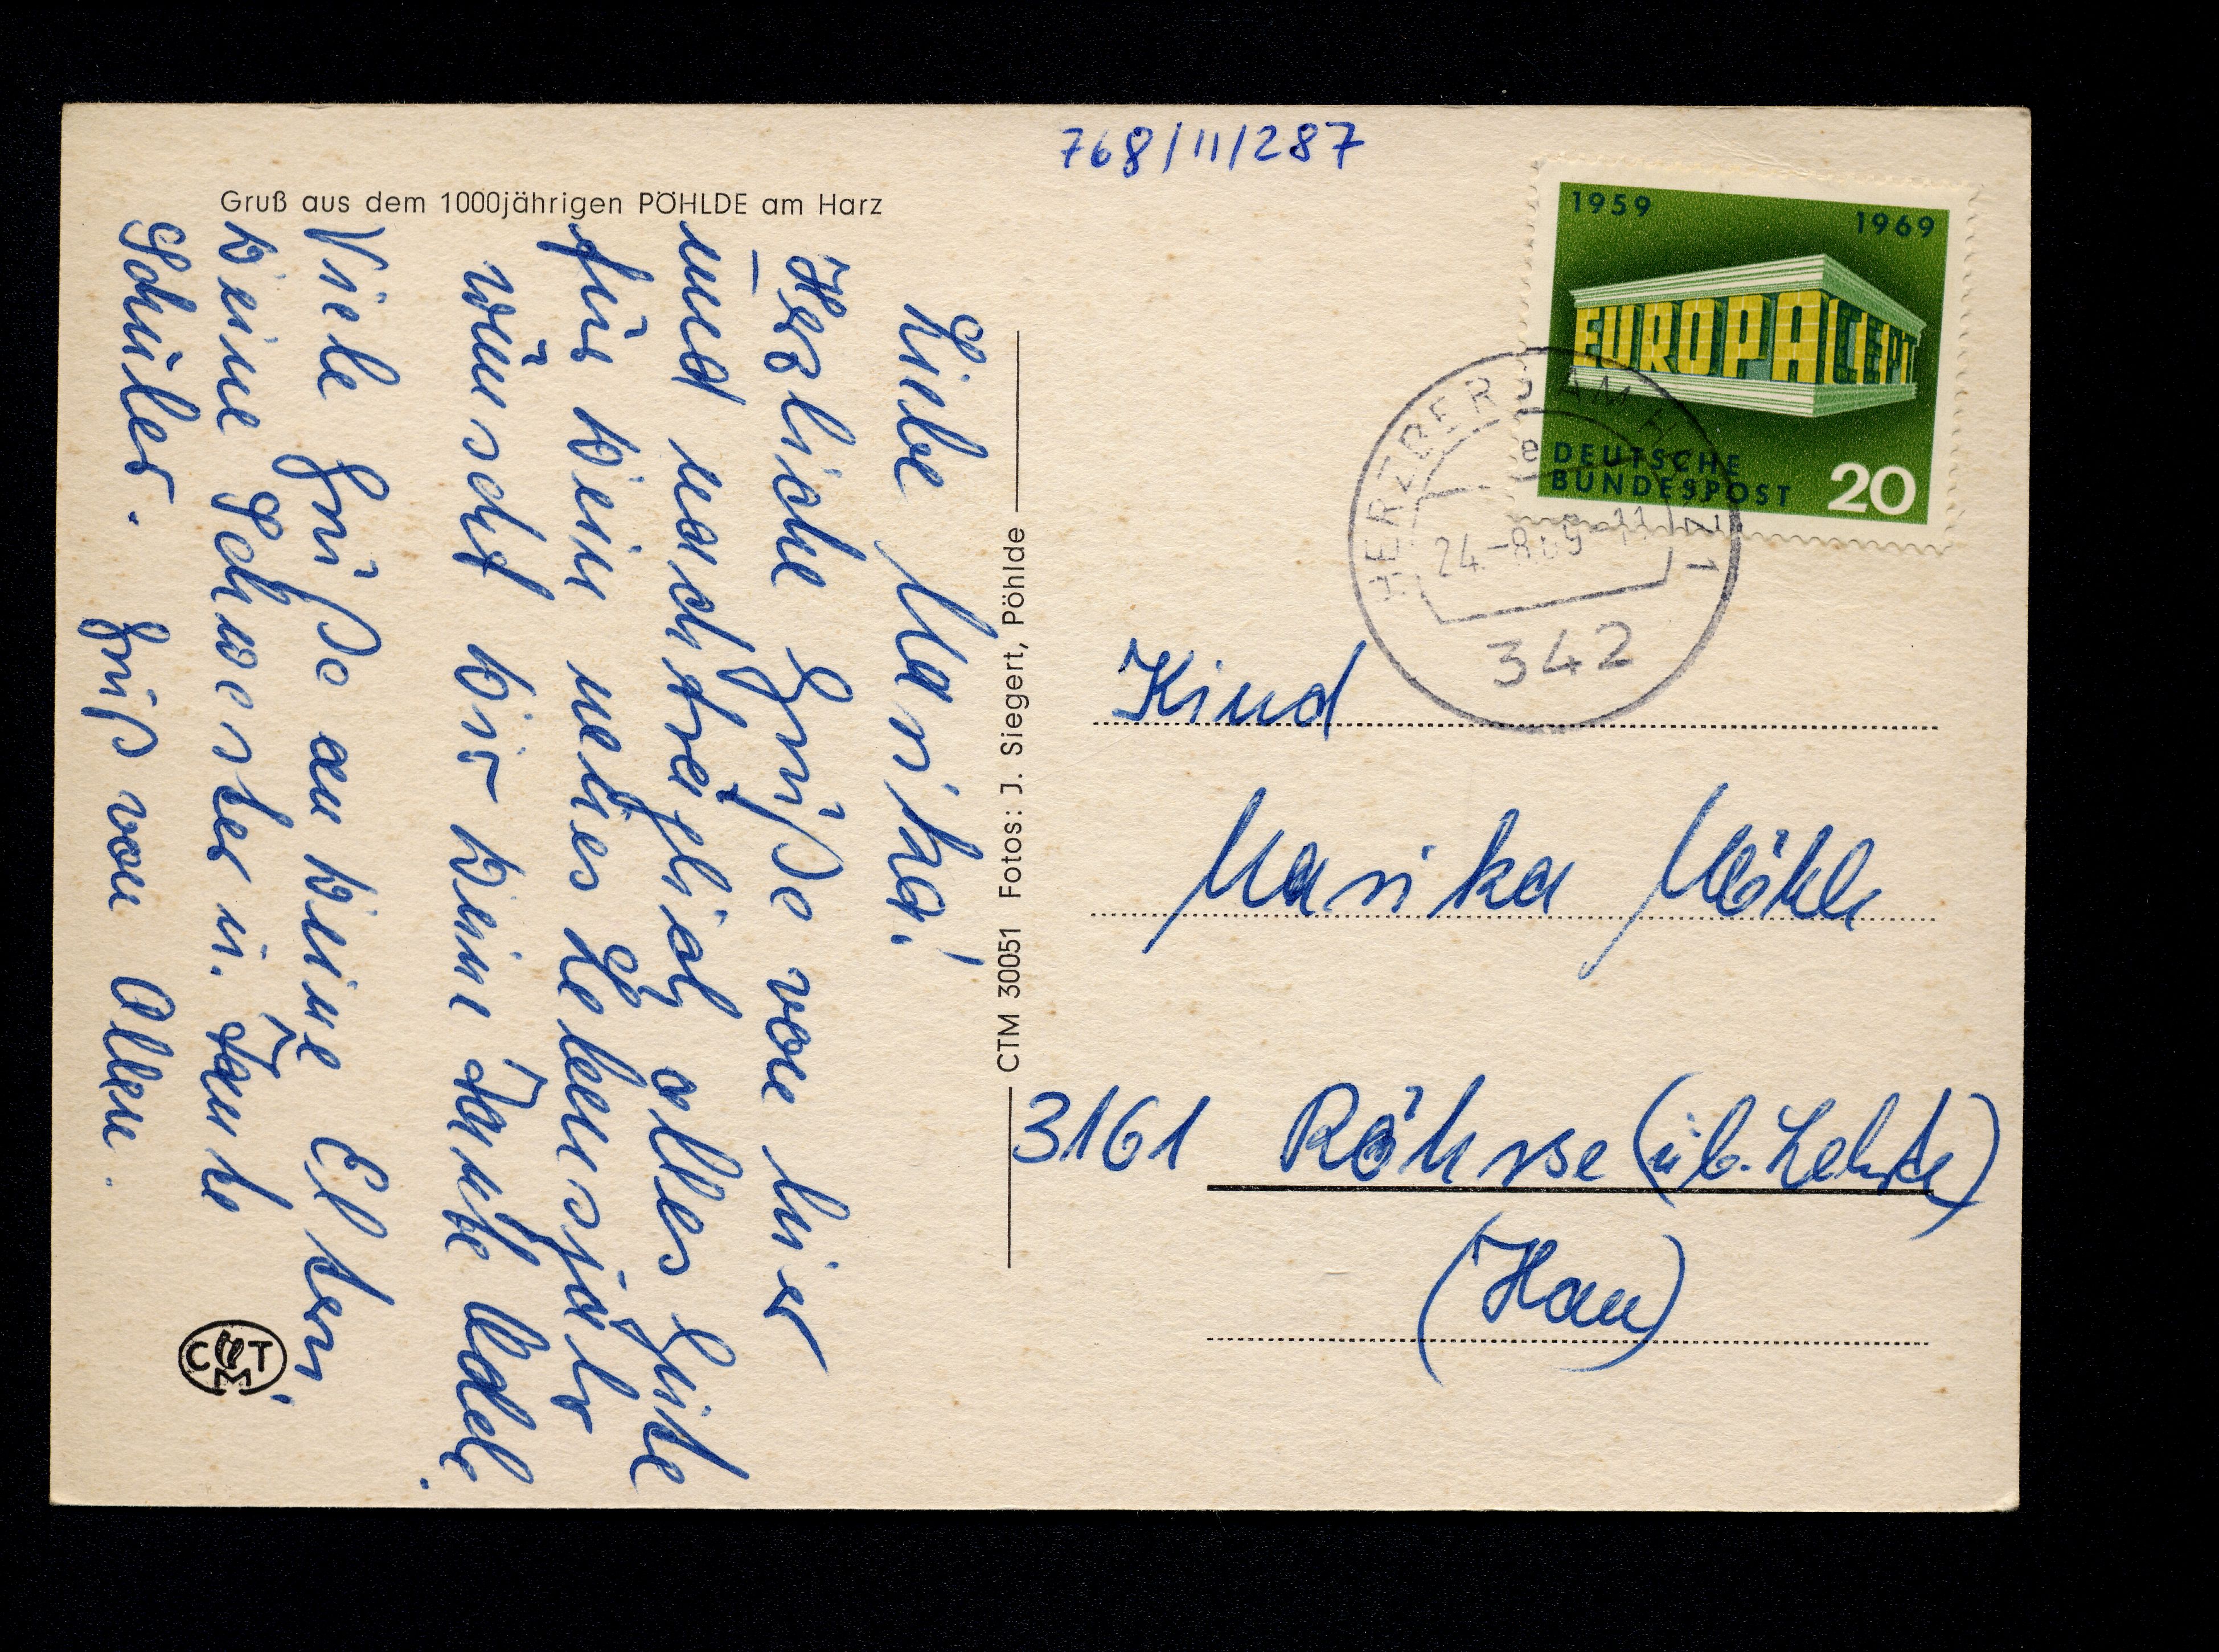 768/11/287
Gruß aus dem 1000jährigen PÖHLDE am Harz
Liebe Marika!
Herzliche Grüße von hier
und nachträglich alles Gute
für Dein neues Lebensjahr
wünscht Dir Deine Tante Adele.
Viele Grüße an Deine Eltern,
Deine Schwester u. Tante
Schüler. Gruß von Allen.
CTM 30051 Fotos: J. Siegert, Pöhlde
CTM
1959 1969
EUROPA CEPT
DEUTSCHE
BUNDESPOST 20
HERZBERG AM HARZ 1
e
24.-8.69-11
342
Kind
Marika Möhle
3161 Röhrse (üb. Lehrte)
(Han)